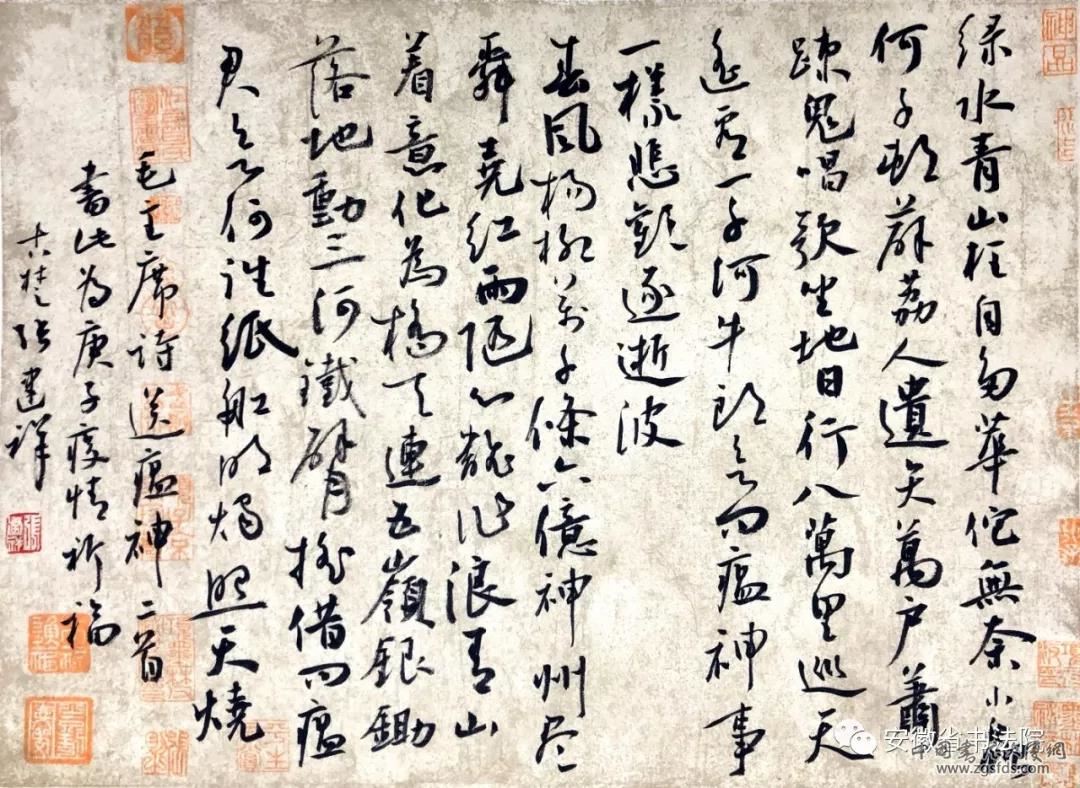 绿水青山枉自多華佗無奈小蟲
何千村薜荔人遺矢萬户蕭
疎鬼唱歌坐地日行八萬里巡天
遥看一千河牛郎欲问瘟神事
一樣悲歡逐逝波
春風楊柳万千條六億神州尽
舜堯红雨随心翻作浪青山
着意化為橋天連五嶺銀鋤
落地動三河鐵臂摇借问瘟
君欲何往纸船明烛照天燒
毛主席诗送瘟神二首
書此为庚子疫情祈福
古楚张建祥
神品
安徽省书法院
www.zgsfds.com